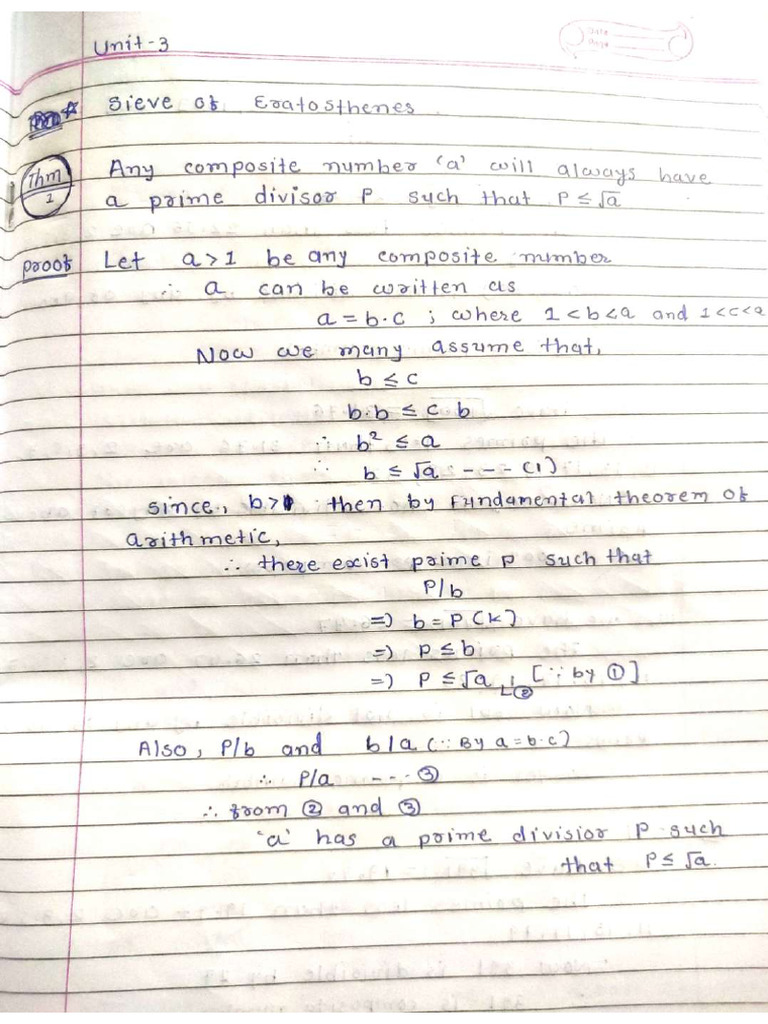 Date
Page
Unit-3
☆ Sieve of Eratosthenes
Thm 1 Any composite number 'a' will always have
a prime divisor P such that P ≤ √a
Proof Let a > 1 be any composite number
∴ a can be written as
a = b·c ; where 1 < b < a and 1 < c < a
Now we many assume that,
b ≤ c
b·b ≤ c b
∴ b² ≤ a
∴ b ≤ √a --- (1)
Since, b > 1 then by Fundamental theorem of
arithmetic,
∴ there exist prime p such that
P/b
=) b = P(k)
=) P ≤ b
=) P ≤ √a ② [∵ by ①]
Also, P/b and b/a (∵ By a = b·c)
∴ P/a --- ③
∴ from ② and ③
'a' has a prime divisior P such
that P ≤ √a.